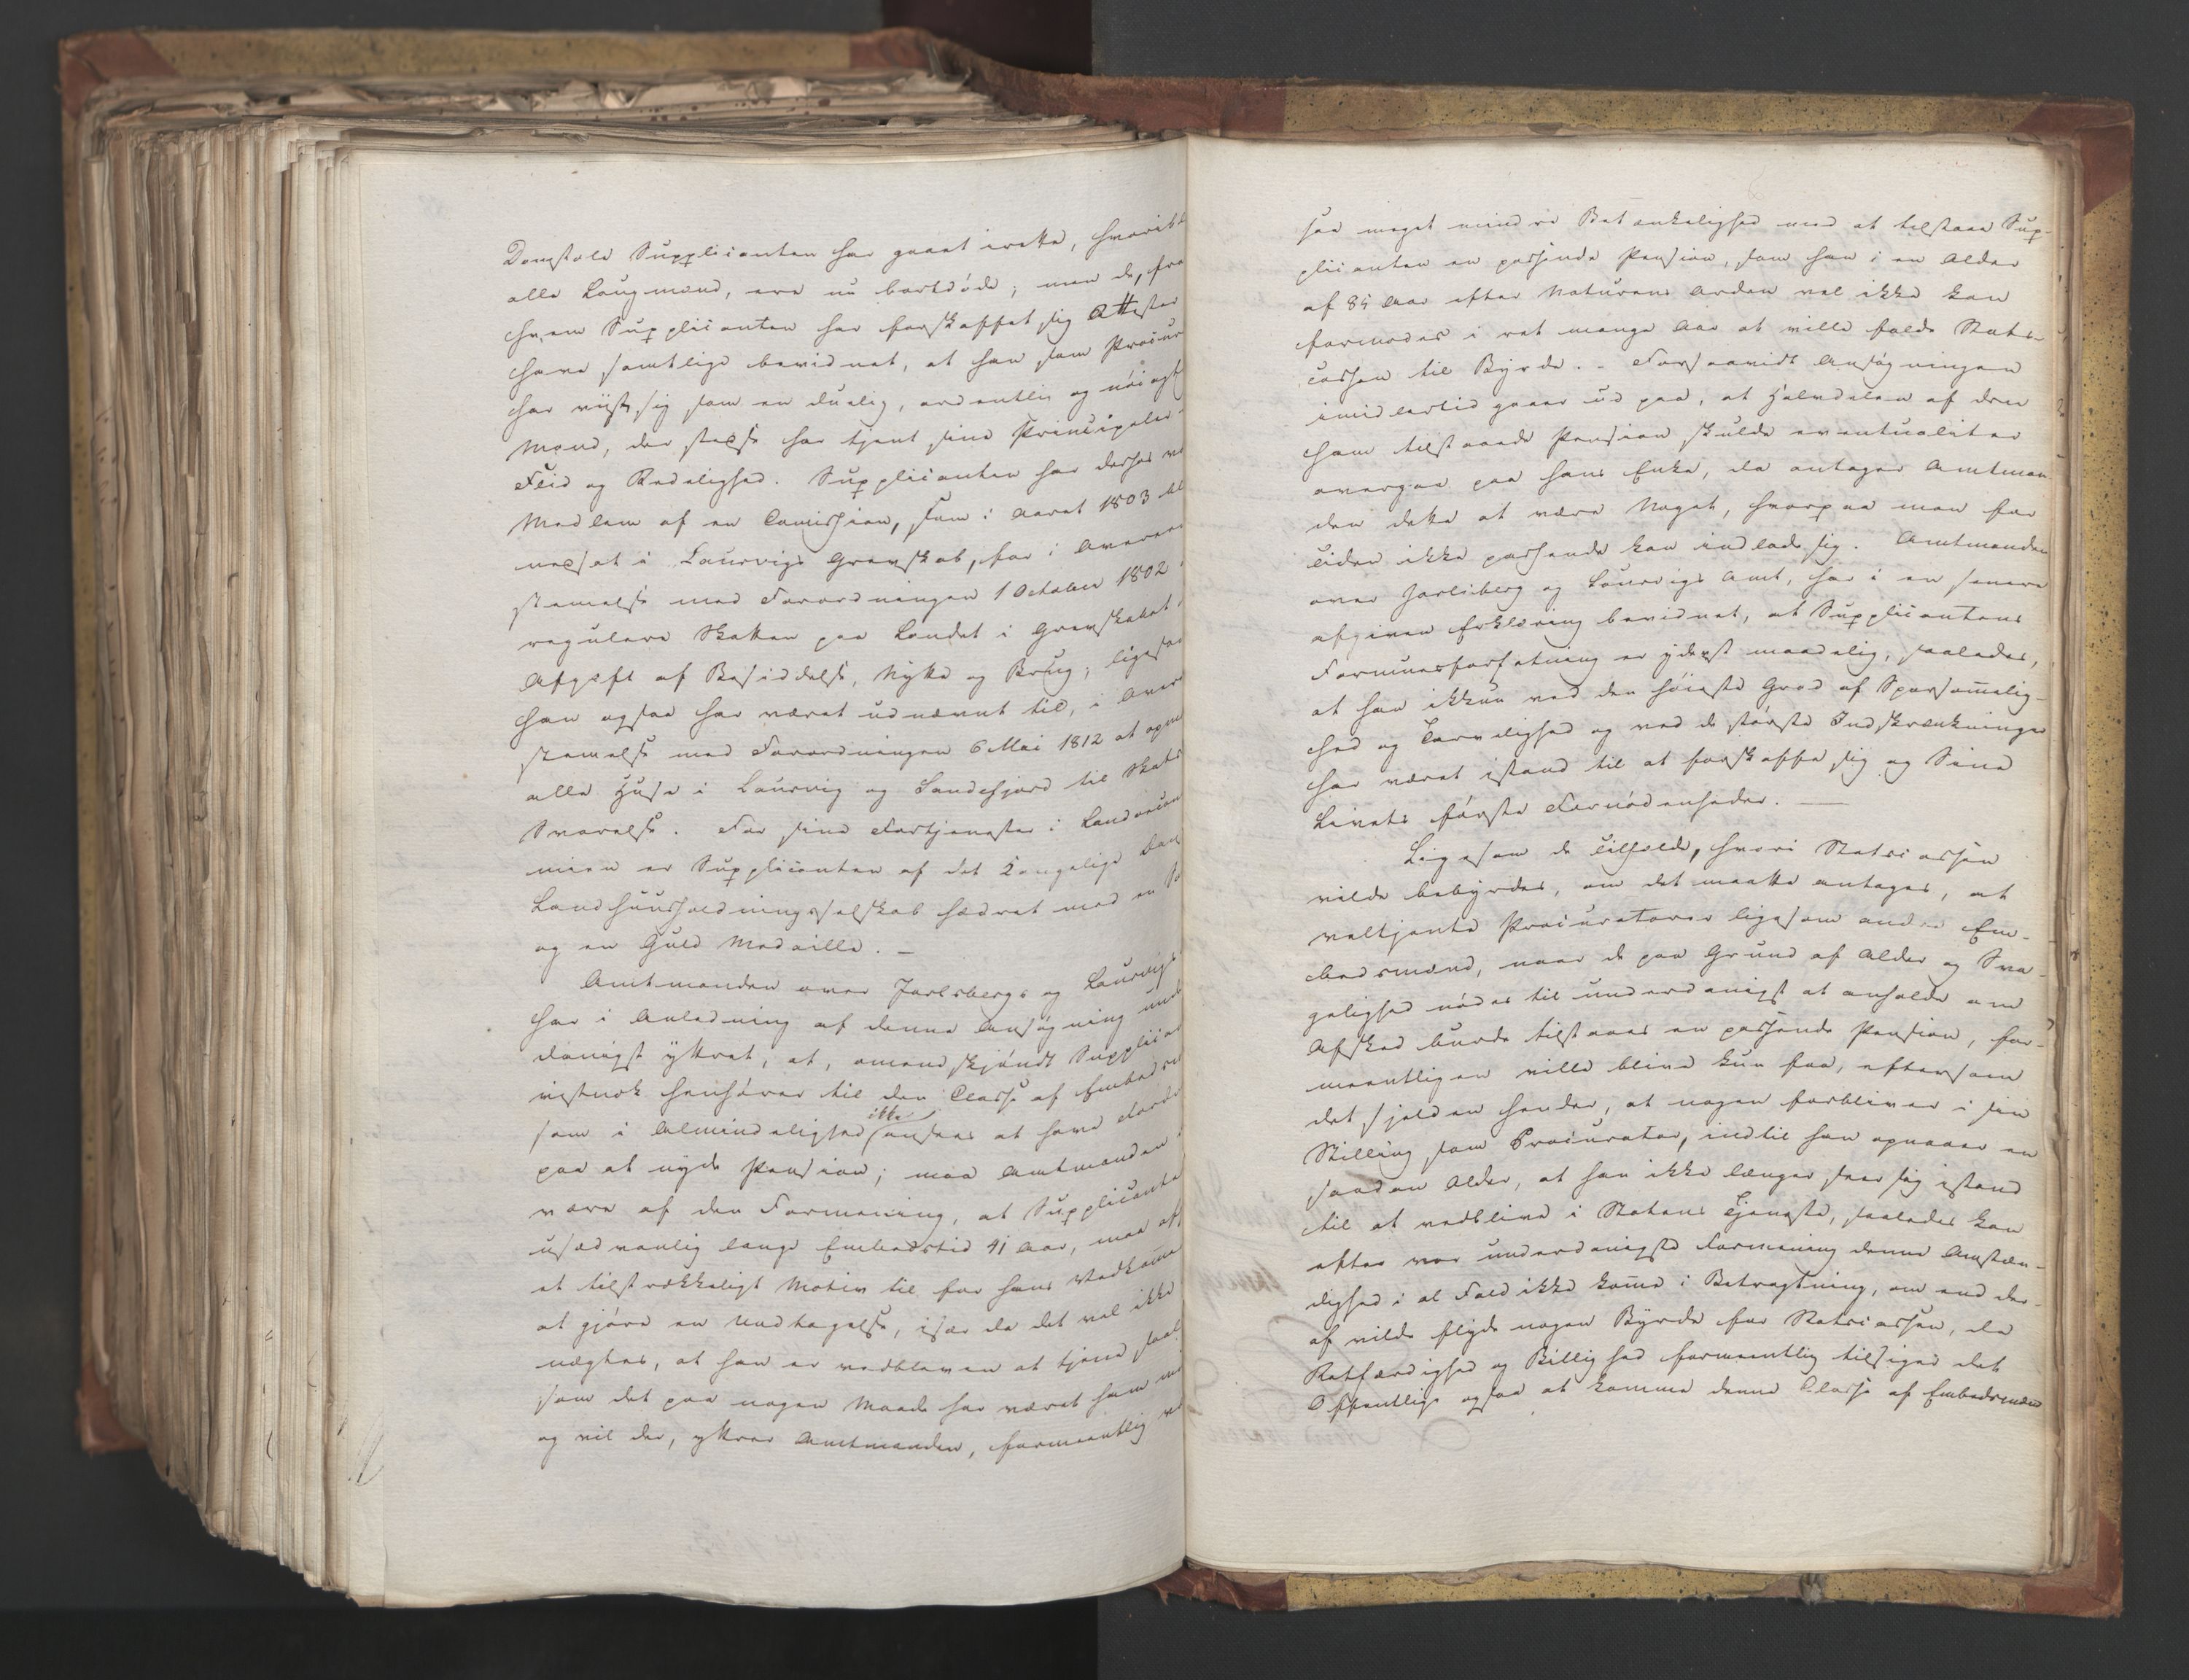 Domstole Supplicanten har gaaet irette, hvoribl
alle Laugmænd, ere nu bortdøde; men de, fra
hvem Supplicanten har forskaffet sig Attester
have samtlige bevidnet, at han som Procur
har viist sig som en duelig, ordentlig og nøiagt
Mand, der stedse har tjent sine Principaler
Flid og Redelighed. Supplicanten har desses væ
Medlem af en Comission, som i Aaret 1803 bl
nedsat i Laurvigs Grevskab, for i Overeen
stemmelse med Forordningen 1 October 1802
regulere Skatten paa Landet i Grevskabet,
Afgift af Besiddelse, Nytte og Brug; ligesaa
han ogsaa har været udnævnt til, i Overe
stemmelse med Forordningen 6 Mai 1812 at opm
alle Huse i Laurvig og Sandefjord til Skats
Svarelse. For sine Fortjenester i Landoecon
mien er Supplicanten af det Kongelige Dan
Landhuusholdningsselskab hædret med en Sø
og en Guld Medaille. –
Amtmanden over Jarlsbergs og Laurvigs
har i Anledning af denne Ansøgning unde
danigst yttret, at, omendskjøndt Supplican
vistnok henhører til den Classe af Embedsm
som i Almindelighed ikke ansees at have Fordr
paa at nyde Pension; maa Amtmanden
være af den Formening, at Supplicante
usædvanlig lange Embedstid 41 Aar, maa aff
et tilstrækkeligt Motiv til for hans Vedkomme
at gjøre en Undtagelse, især da det vel ikke
nægtes, at han er vedbleven at tjene saal
som det paa nogen Maade har været ham mu
og vil der, yttrer Amtmanden, formeentlig væ
saa meget mindre Betænkelighed med at tilstaae Sup-
plicanten en passende Pension, som han i en Alder
af 85 Aar efter Naturens Orden vel ikke kan
formodes i ret mange Aar at ville falde Stats-
cassen til Byrde. – Forsaavidt Ansøgningen
imidlertid gaaer ud paa, at Halvdelen af den
ham tilstaaede Pension skulde eventualiter
overgaa paa hans Enke, da antager Amtman
den dette at være Noget, hvorpaa man for
Tiden ikke passende kan indlade sig. Amtmanden
over Jarlsberg og Laurvigs Amt, har i en senere
afgiven Erklæring bevidnet, at Supplicantens
Formuesforfatning er yderst maadelig, saaledes,
at han ikkun ved den høieste Grad af Sparsomelig-
hed og Tarvelighed og ved de største Indskrænkninger
har været istand til at forskaffe sig og Sine
Livets første Fornødenheder. –
Ligesom de Tilfælde, hvori Statscassen
vilde bebyrdes, om det maatte antages, at
veltjente Procuratorer ligesom andre Em-
bedsmænd, naar de paa Grund af Alder og Sva-
gelighed nødes til underdanigst at anholde om
Afsked burde tilstaaes en passende Pension, for-
meentligen ville blive kun faa, eftersom
det sjelden hender, at nogen forbliver i sin
Stilling som Procurator, indtil han opnaaer en
saadan Alder, at han ikke længer seer sig istand
til at vedblive i Statens Tjeneste, saaledes kan
efter vor underdanigste Formening denne Omstæn-
dighed i al Fald ikke kome i Betragtning, om end der-
af vilde flyde nogen Byrde for Statscassen, da
Retfærdighed og Billighed formeentlig tilsiger det
Offentlige ogsaa at komme denne Classe af Embedsmænd